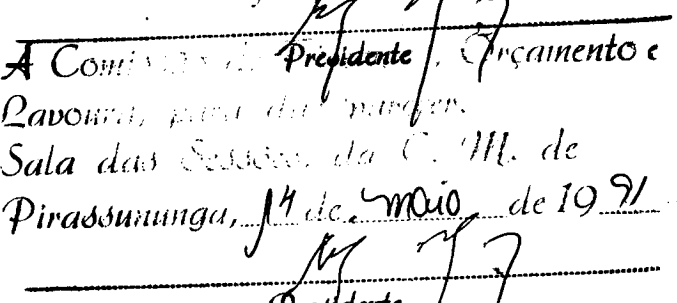 Presidente
A Comissão de , Orçamento e
Lavoura, para dar parecer.
Sala das Sessões, da C. M. de
Pirassununga, 14 de maio de 1991
Presidente